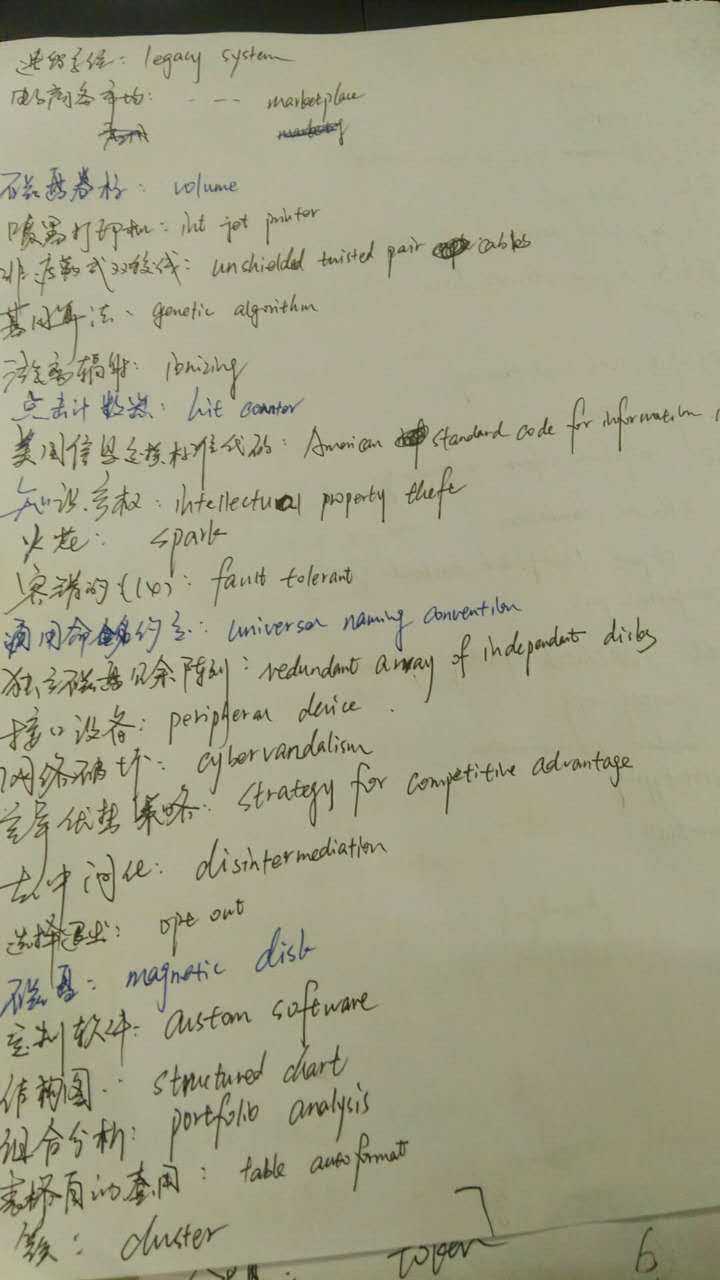 遗留系统: legacy system
电子商务市场: - -- marketplace
磁盘卷标: volume
喷墨打印机: int jet printer
非屏蔽式双绞线: unshielded twisted pair cables
基因算法、genetic algorithm
电离辐射: ionizing
点击计数器: hit counter
美国信息交换标准代码: American standard code for information
知识产权: intellectual property theft
火花: spark
容错的 fault tolerant
通用命名约定: universal naming convention
独立磁盘冗余阵列: redundant array of independent disks
接口设备: peripheral device.
网络破坏: cybervandalism
竞争优势策略: strategy for competitive advantage
去中间化: disintermediation
选择退出: opt out
磁盘: magnetic disk
定制软件: custom software
结构图: structured chart
组合分析: portfolio analysis
表格自动套用: table autoformat
簇: cluster
token 6